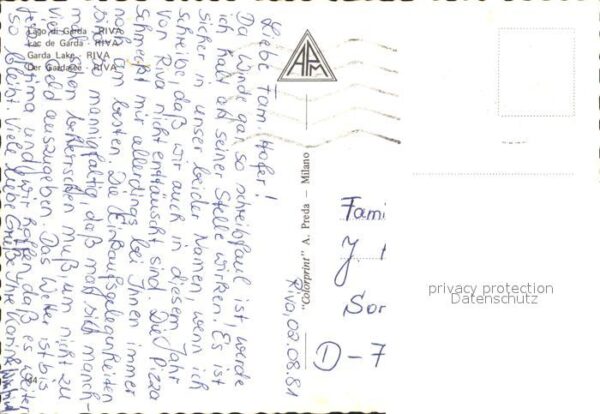 Lago di Garda - RIVA
Lac de Garda - RIVA
Garda Lake - RIVA
Der Gardasee - RIVA
APM
"Colorprint" A. Preda — Milano
Riva, 02.08.81
Liebe Fam. Hofer!
Da Winde gar so schreibfaul ist, werde
ich halt an seiner Stelle wirken. Es ist
sicher in unser beider Namen, wenn ich
schreibe, daß wir auch in diesem Jahr
von Riva nicht enttäuscht sind. Die Pizza
schmeckt mir allerdings bei Ihnen immer
noch am besten. Die Einkaufsgelegenheiten
sind so mannigfaltig, daß man sich manch-
mal schon beherrschen muß, um nicht zu
viel Geld auszugeben. Das Wetter ist bis
jetzt prima und wir hoffen, daß es weiter
so bleibt. Viele liebe Grüße
Fami
J
Sor
D-7
privacy protection
Datenschutz